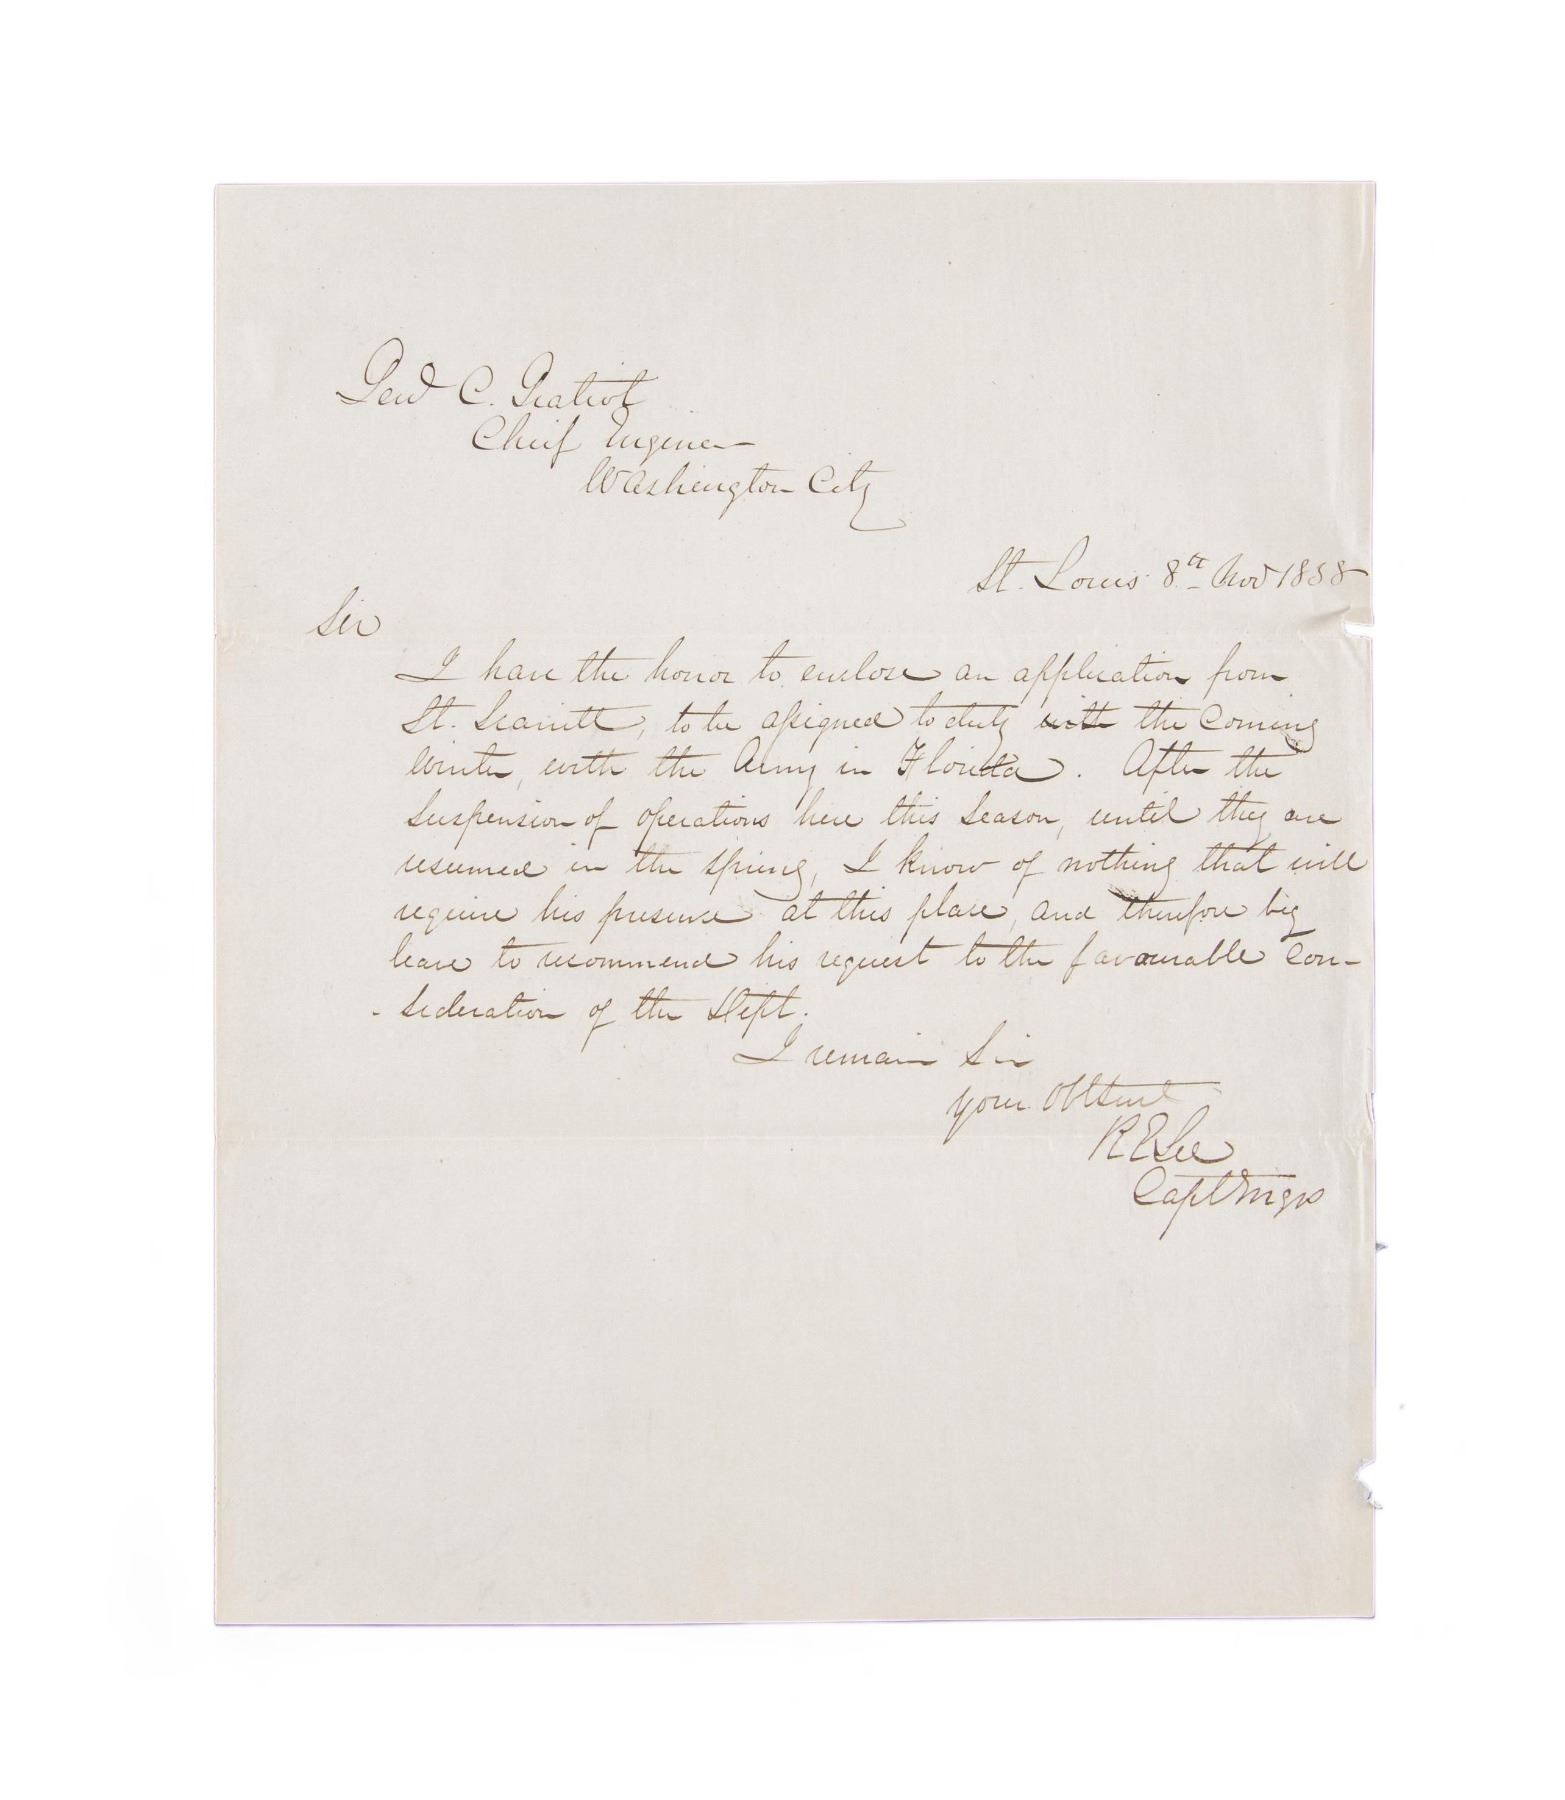 Genl C. Gratiot
Chief Engineer
Washington City
St. Louis 8th Nov 1838
Sir
I have the honor to enclose an application from
Lt. Scarritt, to be assigned to duty with the Coming
winter, with the Army in Florida. After the
suspension of operations here this Season, until they are
resumed in the spring, I know of nothing that will
require his presence at this place, and therefore beg
leave to recommend his request to the favourable Con-
- sideration of the Dept.
I remain Sir
your Obt Servt
R E Lee
Capt Engrs